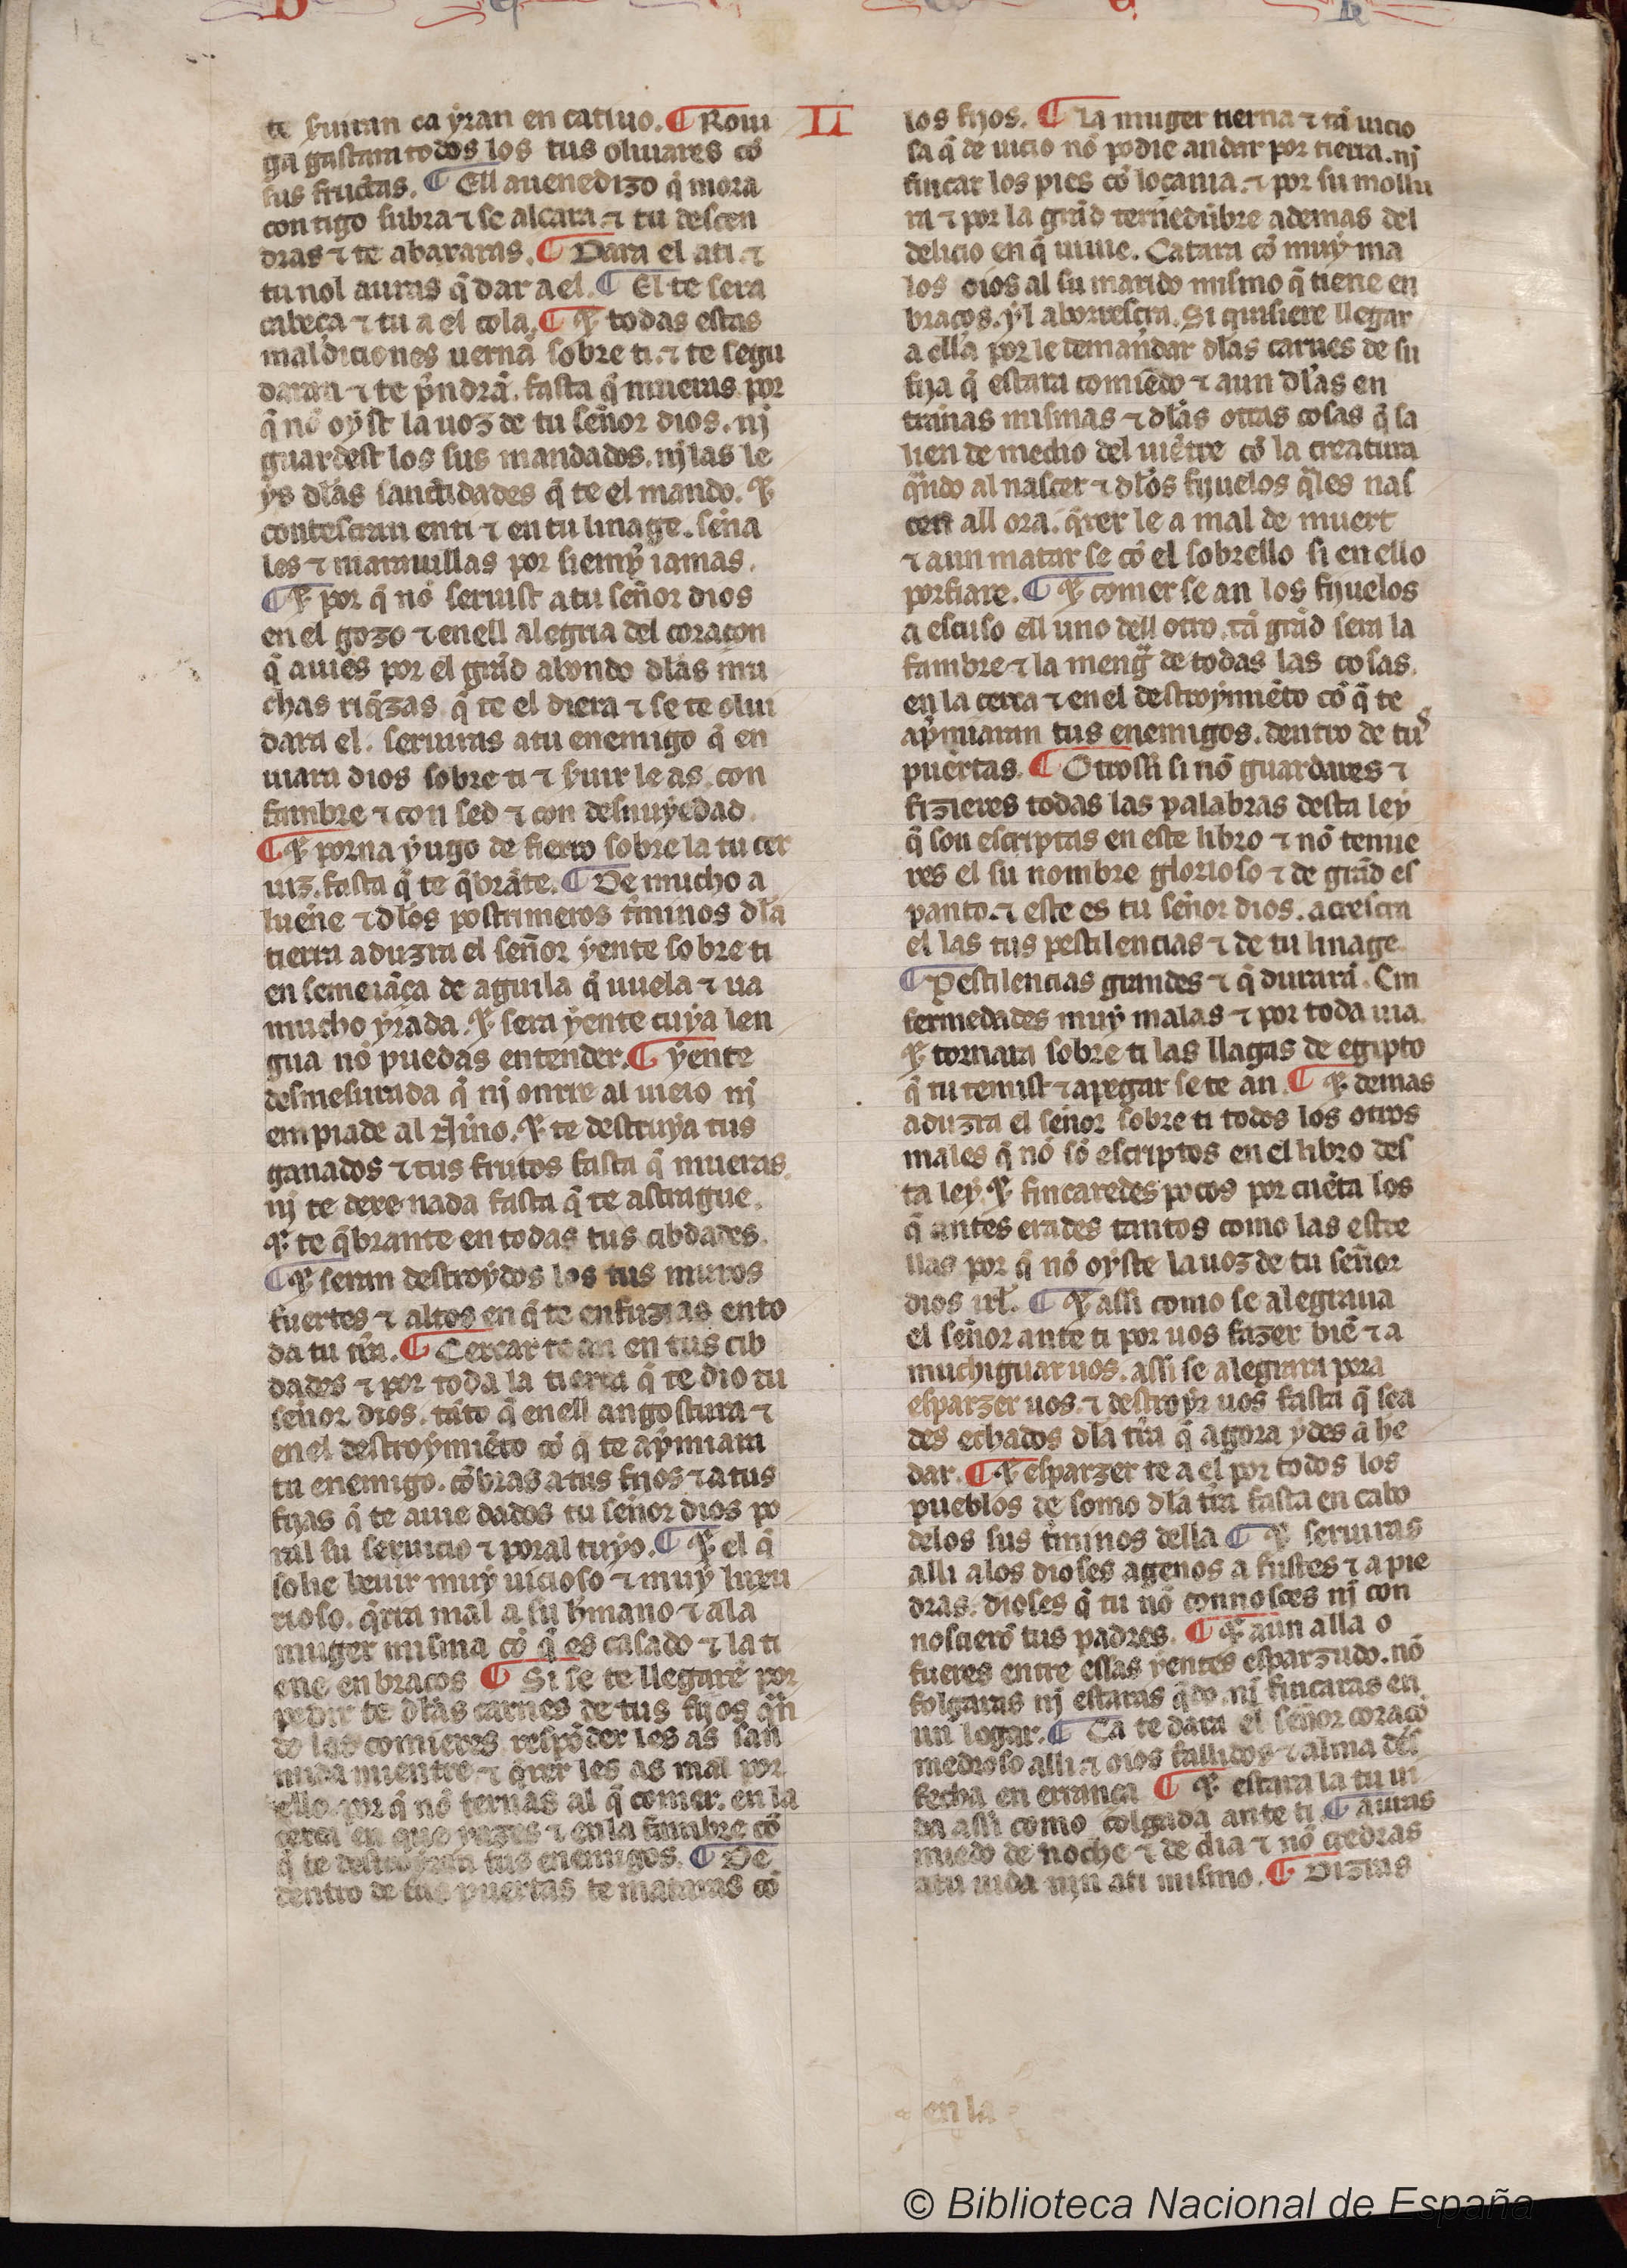 te siruan ca yran en catiuo. ¶ Roui
ga gastara todos los tus oliuares cõ
sus fructas. ¶ Ell auenedizo q̃ mora
contigo subra ⁊ se alçara. ⁊ tu descen
dras ⁊ te abaxaras. ¶ Dara el a ti. ⁊
tu nol auras q̃ dar a el. ¶ El te sera
cabeça ⁊ tu a el cola. ¶ ⁊ todas estas
maldiciones uernã sobre ti. ⁊ te segu
daran ⁊ te p̃ndrã. fasta q̃ mueras. por
q̃ nõ oyst la uoz de tu señor dios. nj
guardest los sus mandados. nj las le
ys dlas sanctidades q̃ te el mando. ⁊
contesçran en ti ⁊ en tu linage. seña
les ⁊ marauillas por siemp̃ iamas.
¶ ⁊ por q̃ nõ seruist a tu señor dios
en el gozo ⁊ en ell alegria del coraçon
q̃ auies por el grãd abondo dlas mu
chas riq̃zas q̃ te el diera ⁊ se te olui
dara el. seruiras a tu enemigo q̃ en
uiara dios sobre ti ⁊ siruir le as. con
fambre ⁊ con sed ⁊ con desnuyedad.
¶ ⁊ porna yugo de fierro sobre la tu cer
uiz. fasta q̃ te q̃brãte. ¶ De mucho a
lueñe ⁊ dlos postrimeros t̃minos dla
tierra aduzra el señor yente sobre ti
en semeiãça de aguila q̃ uuela ⁊ ua
mucho yrada. ⁊ sera yente cuya len
gua nõ puedas entender. ¶ yente
desmesurada q̃ nj onrre al uieio nj
empiade al njño. ⁊ te destruya tus
ganados ⁊ tus frutos fasta q̃ mueras.
nj te dexe nada fasta q̃ te astrague.
⁊ te q̃brante en todas tus cibdades.
¶ ⁊ seran destroydos los tus muros
fuertes ⁊ altos en q̃ te enfuzias en to
da tu tr̃a. ¶ Cercar te an en tus cib
dades ⁊ por toda la tierra q̃ te dio tu
señor dios. tãto q̃ en ell angostura ⁊
en el destroymiẽto cõ q̃ te ap̃miara
tu enemigo. cõbras a tus fijos ⁊ a tus
fijas q̃ te auie dados tu señor dios po
ral su seruicio ⁊ poral tuyo. ¶ ⁊ el q̃
solie beuir muy uicioso ⁊ muy luxu
rioso. q̃rra mal a su h̃mano ⁊ a la
muger misma cõ q̃ es casado ⁊ la ti
ene en braços. ¶ Si se te llegarẽ por
pedir te dlas carnes de tus fijos q̃n
do los comieres respõder les as san
nuda mientre. ⁊ q̃rer les as mal por
ello. por q̃ nõ ternas al q̃ comer. en la
cerca en que yazes ⁊ en la fambre cõ
q̃ te destroyran tus enemigos. ¶ De
dentro de tus puertas te mataras cõ
II
los fijos. ¶ La muger tierna ⁊ tã uicio
sa q̃ de uicio nõ podie andar por tierra. nj
fincar los pies cõ loçania. ⁊ por su mollu
ra ⁊ por la grãd ternedũbre ademas del
delicio en q̃ uiuie. Catara cõ muy ma
los oios al su marido mismo q̃ tiene en
braços. yl aborresçra. Si quisiere llegar
a ella por le demandar dlas carnes de su
fija q̃ estara comiẽdo ⁊ aun dlas en
trañas mismas ⁊ dlas otras cosas q̃ sa
llen de medio del uiẽtre cõ la creatura
q̃ndo al nascer ⁊ dlos fijuelos q̃les nas
cen all ora. q̃rer le a mal de muert
⁊ aun matar se cõ el sobrello si en ello
porfiare. ¶ ⁊ comer se an los fijuelos
a escuso ell uno dell otro. tã grãd sera la
fambre ⁊ la meng̃ de todas las cosas.
en la cerca ⁊ en el destroymiẽto cõ q̃ te
ap̃miaran tus enemigos. dentro de tus
puertas. ¶ Otrossi si nõ guardares ⁊
fizieres todas las palabras desta ley
q̃ son escriptas en este libro ⁊ nõ temie
res el su nombre glorioso ⁊ de grãd es
panto. ⁊ este es tu señor dios. acresçra
el las tus pestilencias ⁊ de tu linage.
¶ Pestilencias grandes ⁊ q̃ durarã. En
fermedades muy malas ⁊ por toda uia.
⁊ tornara sobre ti las llagas de egipto
q̃ tu temist ⁊ apegar se te an. ¶ ⁊ demas
aduzra el señor sobre ti todos los otros
males q̃ nõ sõ escriptos en el libro des
ta ley. ⁊ fincaredes pocos por cuẽta los
q̃ antes erades tantos como las estre
llas por q̃ nõ oyste la uoz de tu señor
dios irl̃. ¶ ⁊ assi como se alegraua
el señor ante ti por uos fazer biẽ ⁊ a
muchiguar uos. assi se alegrara pora
esparzer uos. ⁊ destroyr uos fasta q̃ sea
des echados dla tr̃a q̃ agora ydes a he
dar. ¶ ⁊ esparzer te a el por todos los
pueblos de somo dla tr̃a fasta en cabo
delos sus t̃minos della. ¶ ⁊ seruiras
alli alos dioses agenos a fustes ⁊ a pie
dras. dioses q̃ tu nõ connosces nj con
noscierõ tus padres. ¶ ⁊ aun alla o
fueres entre essas yentes esparzudo. nõ
folgaras nj estaras q̃do. nj fincaras en
un logar. ¶ Ca te dara el señor coraçõ
medroso alli ⁊ oios fallidos ⁊ alma des
fecha en errança. ¶ ⁊ estara la tu ui
da assi como colgada ante ti. ¶ auras
miedo de noche ⁊ de dia ⁊ nõ credras
a tu uida nin a ti mismo. ¶ Dizras
en la
© Biblioteca Nacional de España